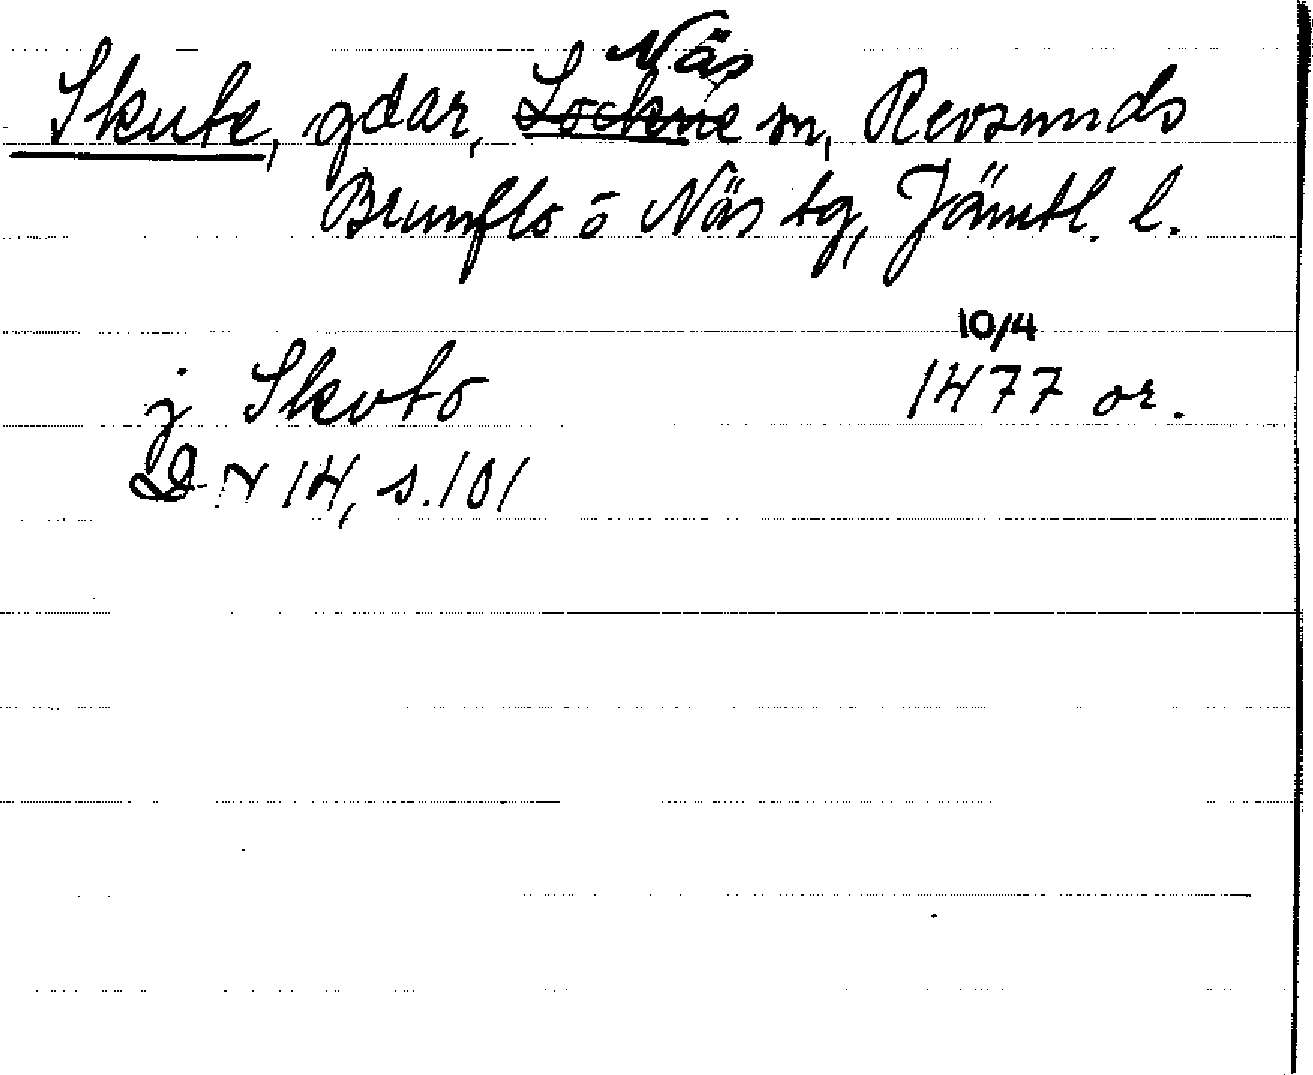 Näs
Skute, gdar, Lockne sn, Revsunds
Brunflo o Näs tg, Jämtl. l.
10/4
j Skuto 1477 or.
DN 14, s. 101